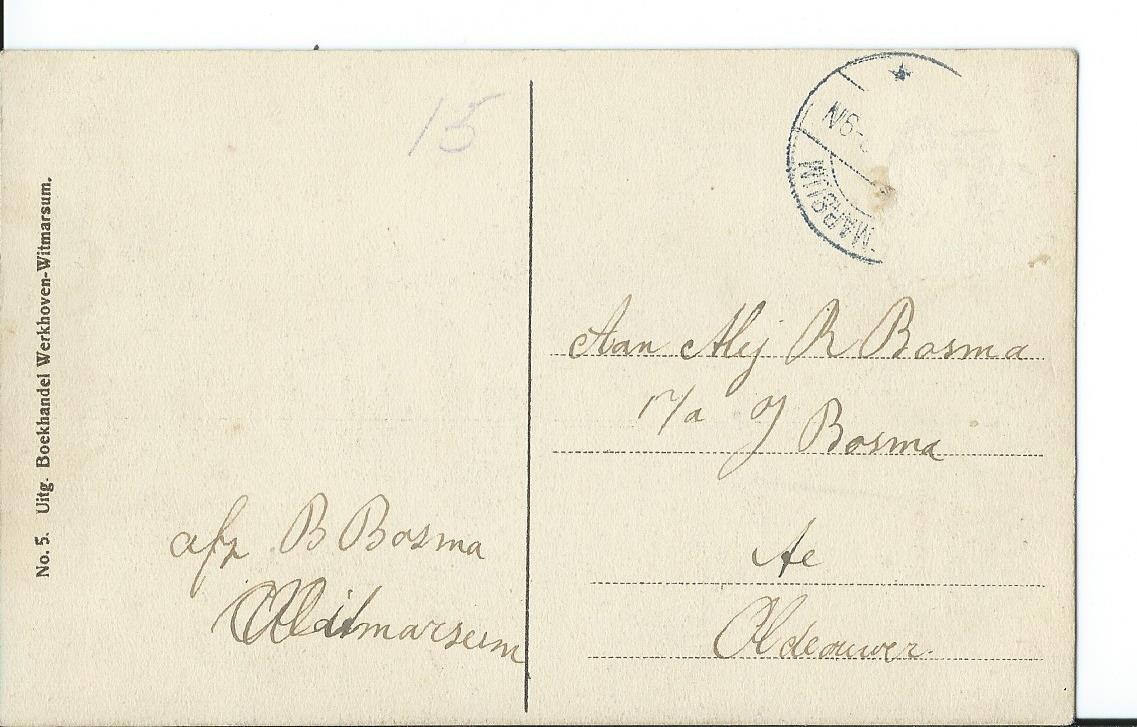 No. 5. Uitg. Boekhandel Werkhoven-Witmarsum.
15
afz B Bosma
Witmarsum
N 6-9
MARSUM
Aan Mej R Bosma
p/a J Bosma
Te
Oldeouwer.